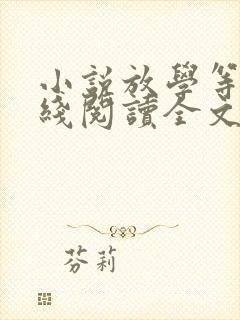 小説放學等
綫閱讀全文
芬莉